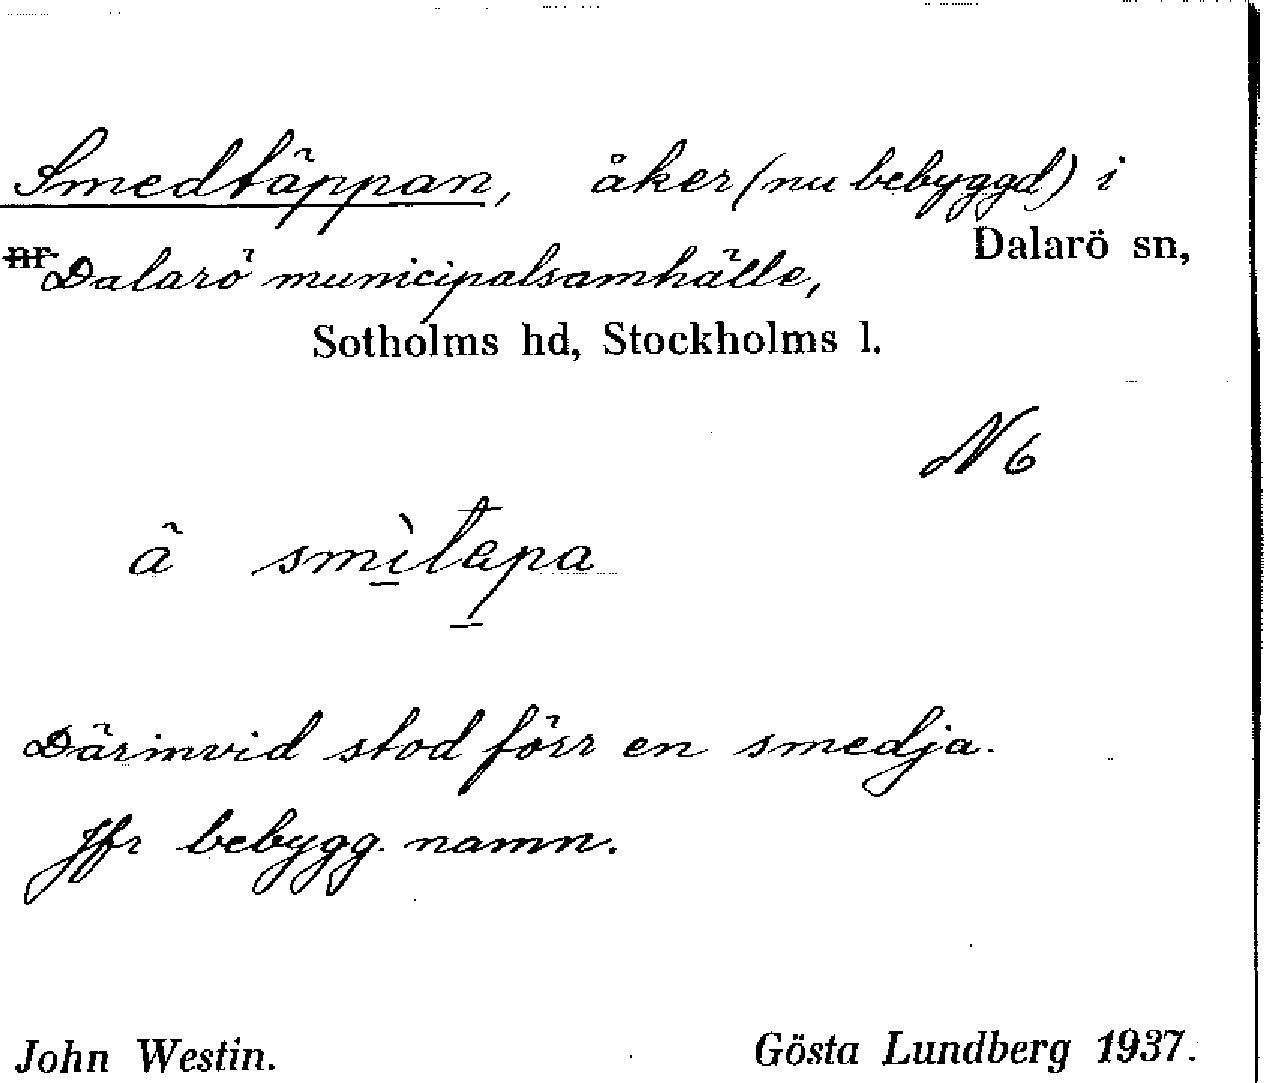 Smedtäppan, åker (nu bebyggd) i
Dalarö sn,
nr Dalarö municipalsamhälle,
Sotholms hd, Stockholms l.
N 6
â smìtapa
Därinvid stod förr en smedja.
Jfr bebygg. namn.
John Westin. Gösta Lundberg 1937.